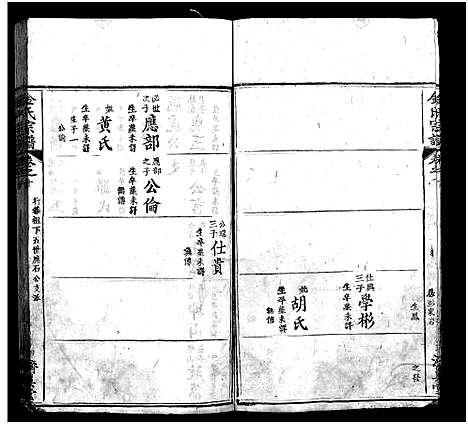 金氏宗譜
卷之
仕興
三子
學彬
生卒葬未詳
妣
胡氏
生卒葬未詳
無傳
公瑞
三子
仕貴
生卒葬未詳
無傳
次子
應部
生卒葬未詳
妣
黃氏
生卒葬未詳
生子一
公倫
應部
之子
公倫
生卒葬未詳
無傳
金氏宗譜
卷之
祖下五世應石公支派